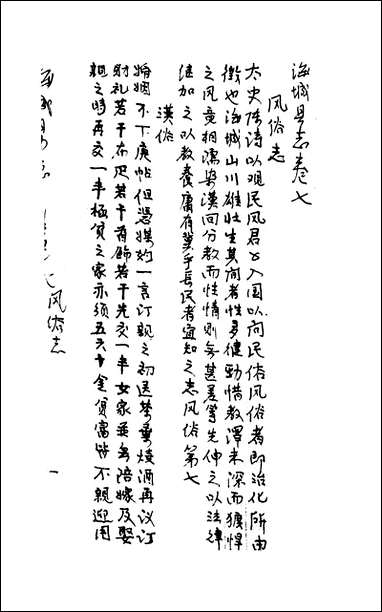 海城县志卷七
风俗志
太史陈诗以观民风君子入国以问民俗风俗者即治化所由
征也海城山川雄壮生其间者性多健劲惜教泽未深而犷悍
之风竟相濡染汉回分教而性情则无甚差等先伸之以法律
继加之以教养庸有冀乎长民者宜知之志风俗第七
汉俗
婚姻不下庚帖但凭媒妁一言订亲之初送茶叶烧酒再议订
财礼若干布疋若干首饰若干先交一半女家并无陪嫁及娶
亲之时再交一半极贫之家亦须五六十金贫富皆不亲迎用
海城县志 七风俗志
一